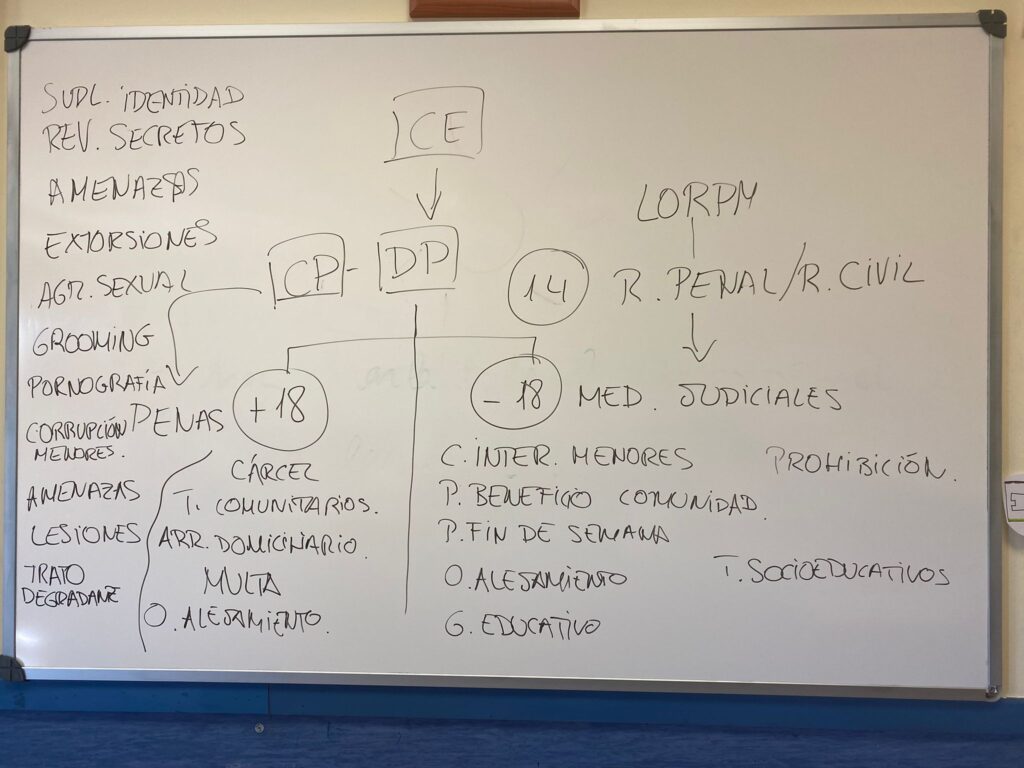 SUPL. IDENTIDAD
REV. SECRETOS
AMENAZAS
EXTORSIONES
AGR. SEXUAL
GROOMING
PORNOGRAFÍA
CORRUPCIÓN
MENORES.
AMENAZAS
LESIONES
TRATO
DEGRADANTE
CE
CP - DP
PENAS
+18
CÁRCEL
T. COMUNITARIOS.
ARR. DOMICIIARIO.
MULTA
O. ALEJAMIENTO.
LORPM
14 R. PENAL/R. CIVIL
-18 MED. JUDICIALES
C. INTER. MENORES
P. BENEFICIO COMUNIDAD.
P. FIN DE SEMANA
O. ALEJAMIENTO
G. EDUCATIVO
PROHIBICIÓN.
T. SOCIOEDUCATIVOS